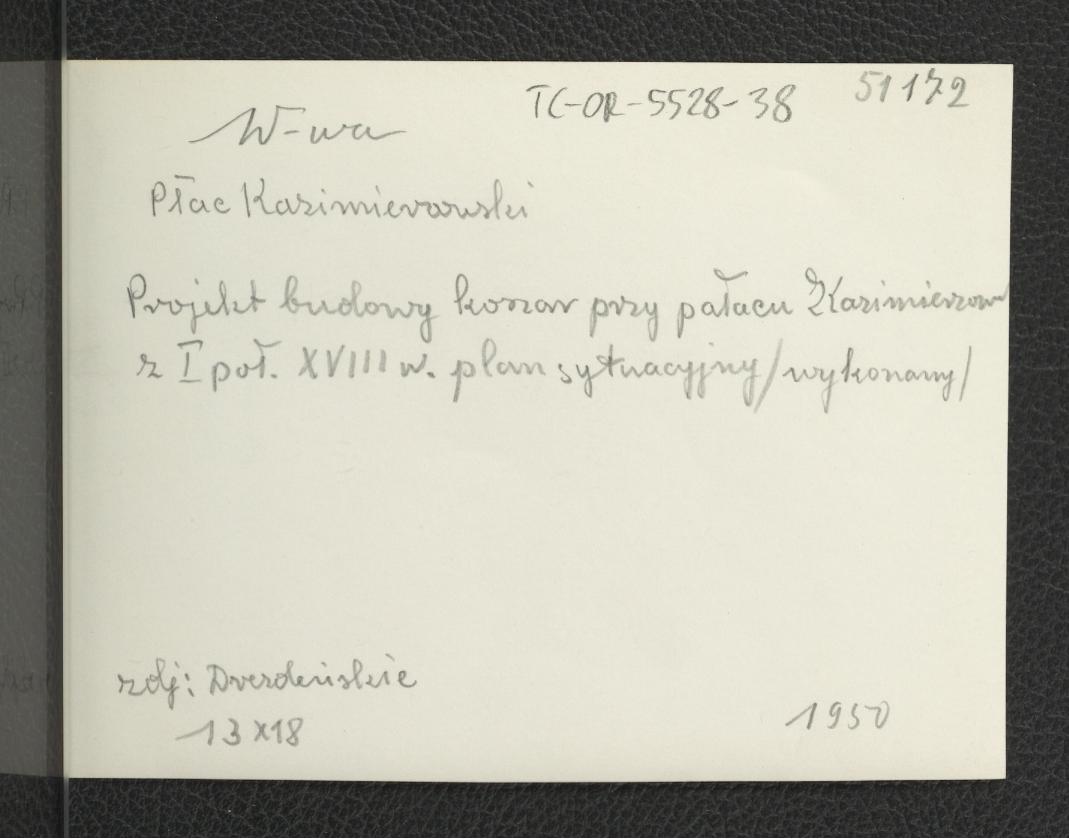 TC-OR-5528-38 51172
W-wa
Płac Kazimierowski
Projekt budowy koszar przy pałacu Kazimierzow
z I poł. XVIII w. plan sytuacyjny/wykonany/
zdj: Drezdeńskie
13x18 1950